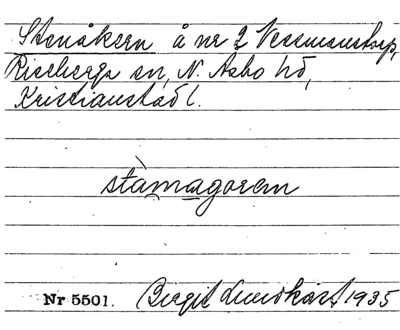 Stenåkern å nr 2 Vessmanstorp,
Riseberga sn, N. Åsbo hd,
Kristianstad l.
stàmagoren
Nr 5501. Birgit Lundkvist 1935